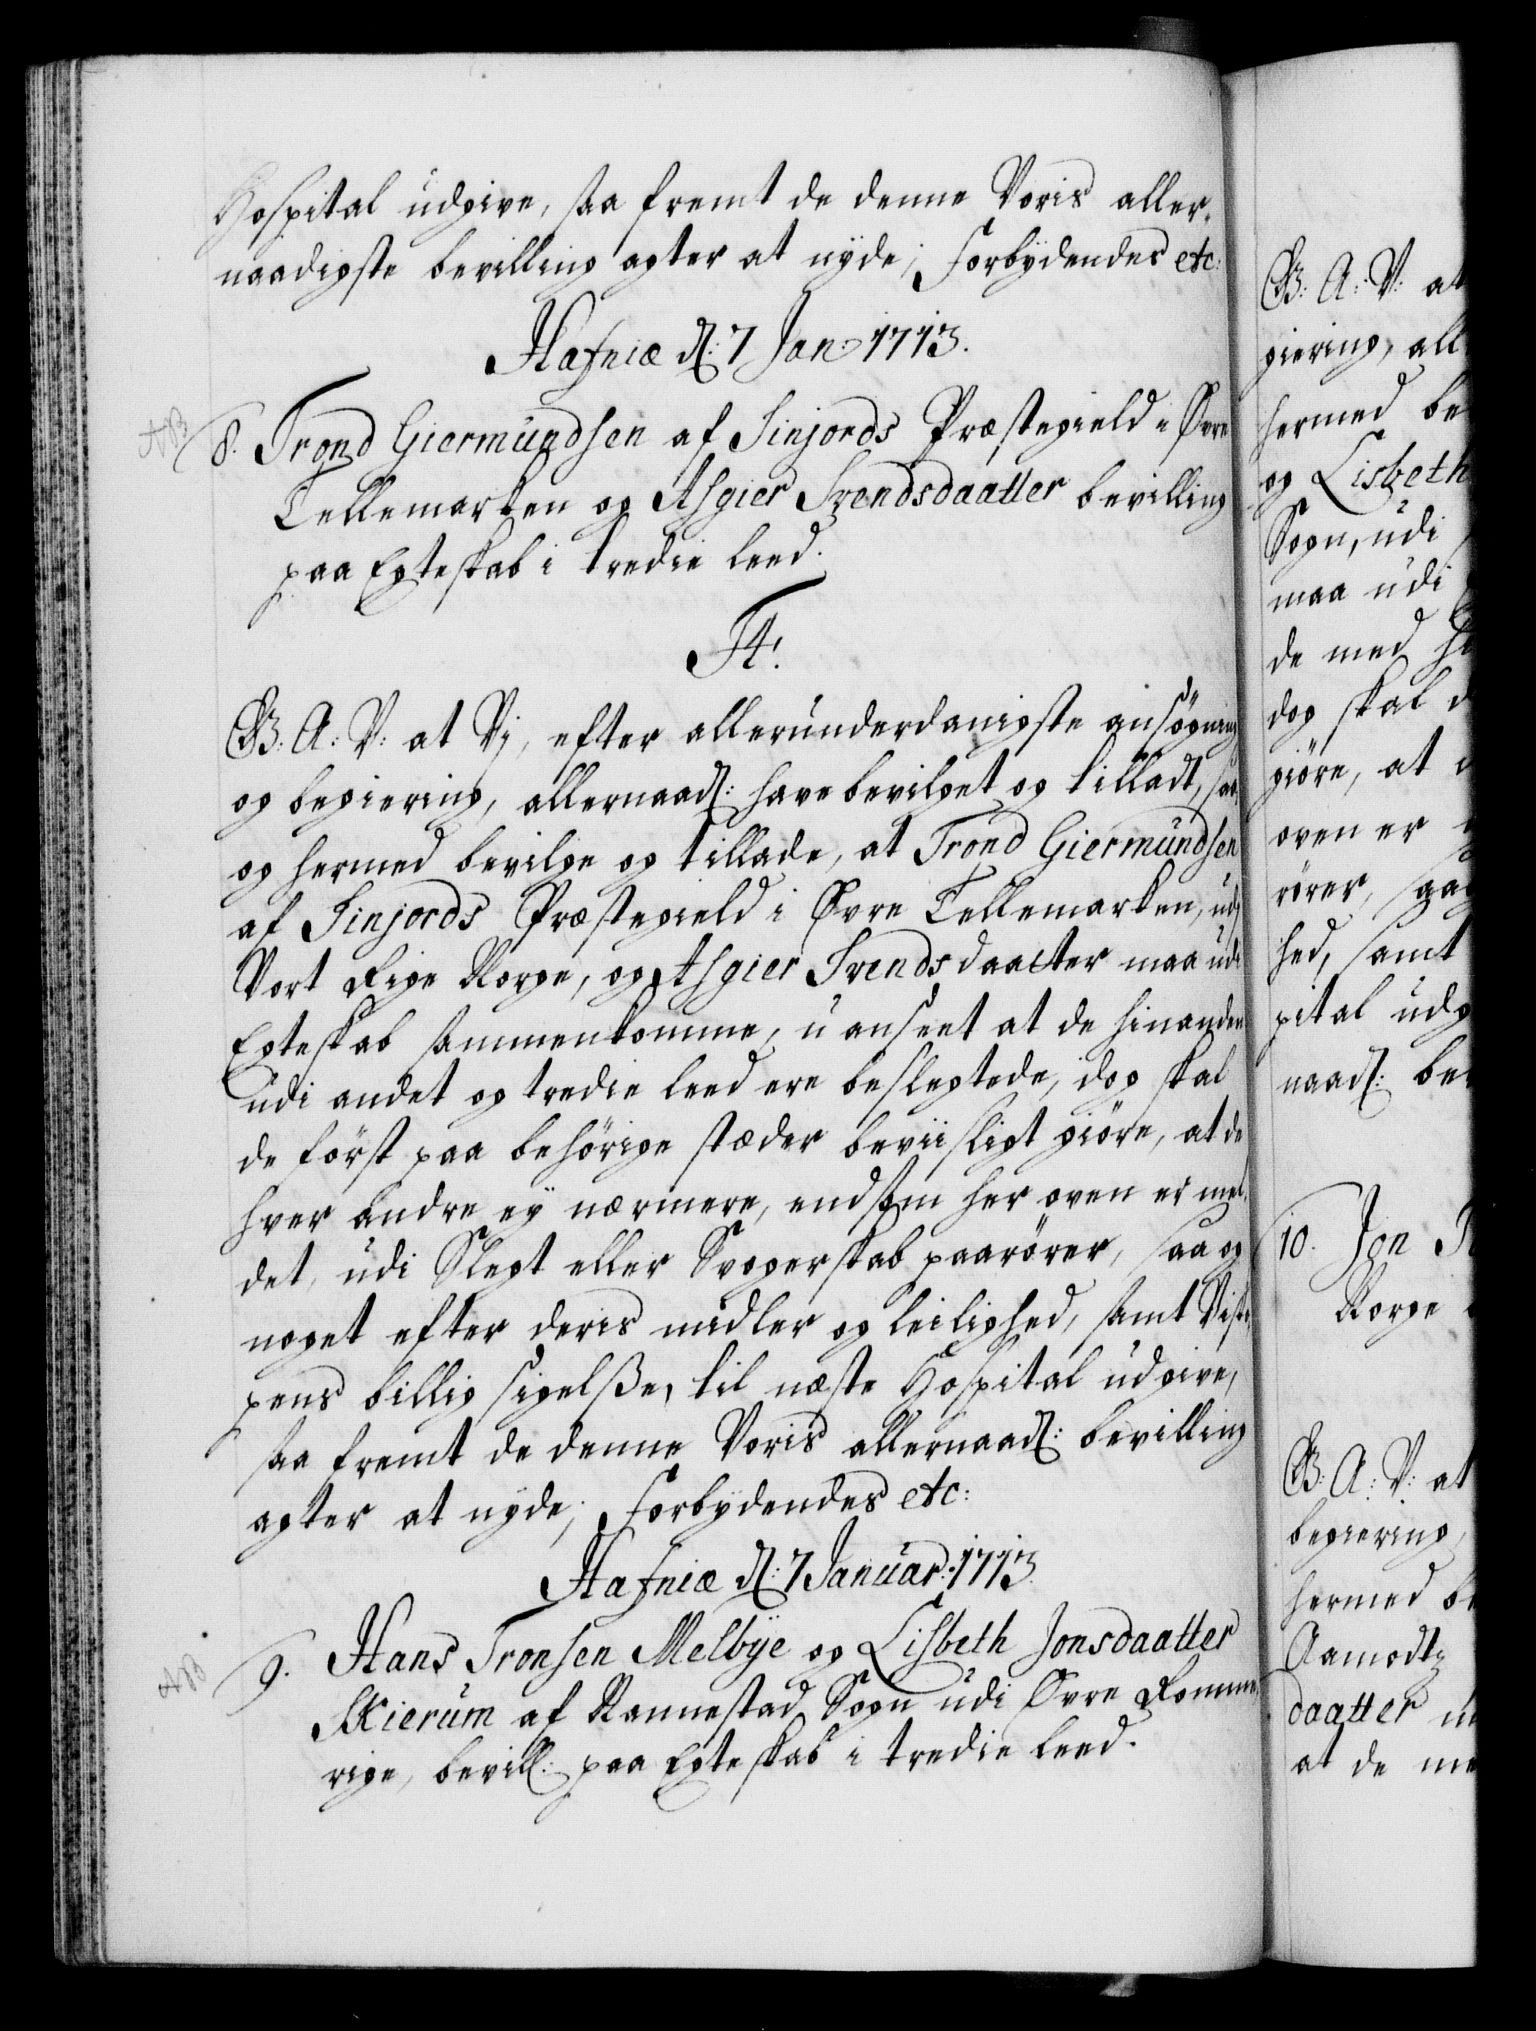 Hospital udgive, saa fremt de denne Voris aller-
naadigste bevilling agter at nyde; Forbydendes etc:
Hafniæ d: 7 Jan: 1713.
8. Trond Giermundsen af Sinjords Præstegield i Øvre
Tellemarken og Asgier Svendsdaatter bevilling
paa Egteskab i tredie leed.
F4:
G: A: V: at Vj, efter allerunderdanigste ansøgning
og begiering, allernaad: have bevilget og tilladt, saa
og hermed bevilge og tillade, at Trond Giermundsen
af Sinjords Præstegield i Øvre Tellemarken, udj
Vort Rige Norge, og Asgier Svendsdaatter maa udi
Egteskab sammenkomme, uanseet at de hinanden
udi andet og tredie leed ere beslegtede, dog skal
de først paa behörige stæder beviisligt giøre, at de
hver andre ey nærmere, end som her oven er mel-
det, udi Slegt eller Svogerskab paarörer, saa og
noget efter deris midler og leilighed, samt Visto-
pens billig sigelße, til næste Hospital udgive,
saa fremt de denne Voris allernaad: bevilling
agter at nyde; Forbydendes etc:
Hafniæ d: 7 Januar: 1713.
9. Hans Tronsen Melbye og Lisbeth Jonsdaatter
Skierum af Nannestad Sogn udi Øvre Romme-
rige, bevill: paa Egteskab i tredie leed.
G: A: V: at
giering, all
hermed be
og Lisbeth
Sogn, udi
maa udi
de med hi
dog skal d
giöre, at d
oven er
rörer, saa
hed, samt
pital udg
naad: be
10. Jon
Norge
G: A: V: at
begiering,
hermed be
Aamodtz
daatter
at de me